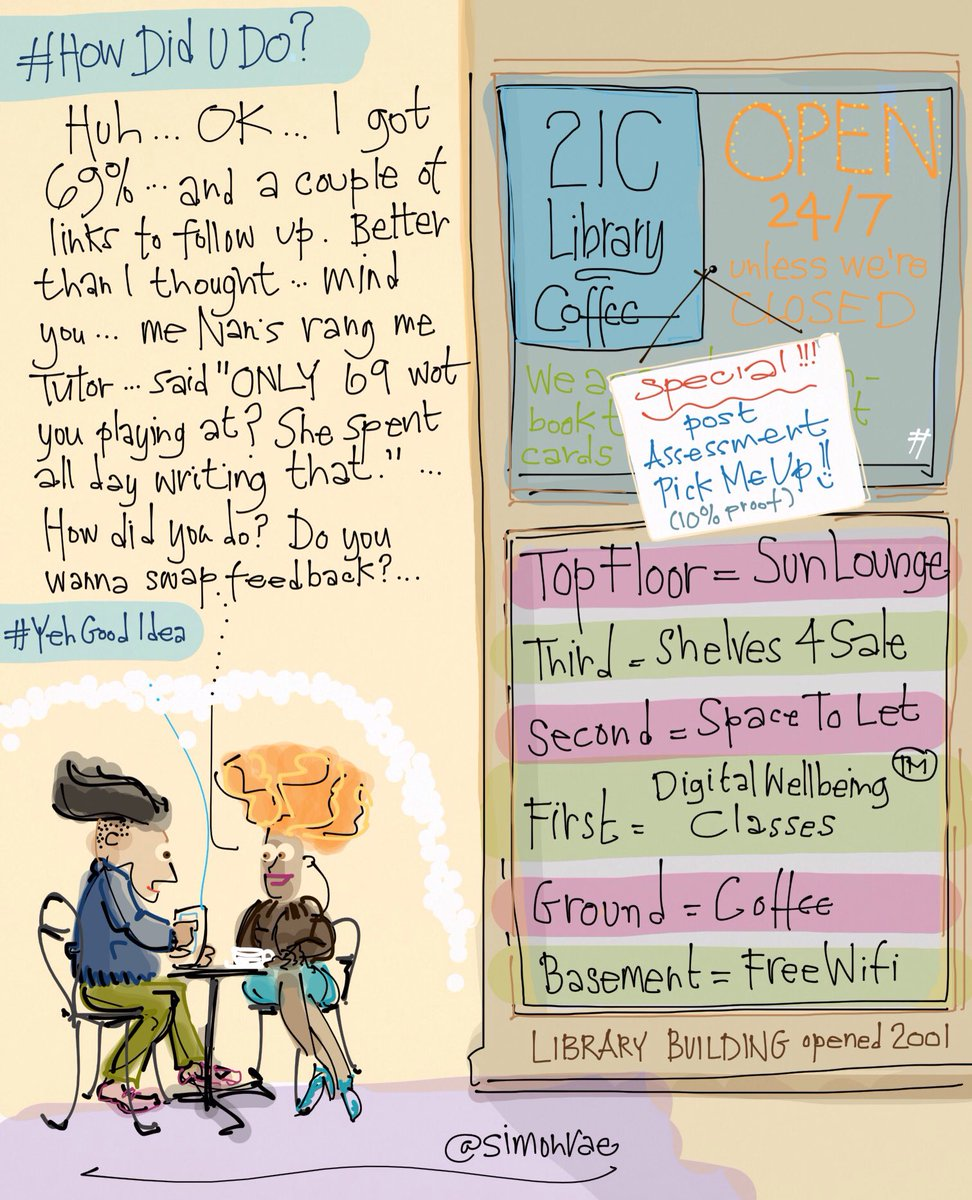 #How Did U Do?
Huh... OK... I got
69%... and a couple of
links to follow up. Better
than I thought... mind
you... me Nan's rang me
Tutor... said "ONLY 69 wot
you playing at? She spent
all day writing that." ...
How did you do? Do you
wanna swap feedback?...
#Yeh Good Idea
21C
Library
Coffee
OPEN
24/7
unless we're
CLOSED
We a
book t
cards
#
Special!!!
post
Assessment
Pick Me Up!!
(10% proof)
Top Floor = Sun Lounge
Third = Shelves 4 Sale
Second = Space To Let
First = Digital Wellbeing TM
Classes
Ground = Coffee
Basement = Free Wifi
LIBRARY BUILDING opened 2001
@simonrae